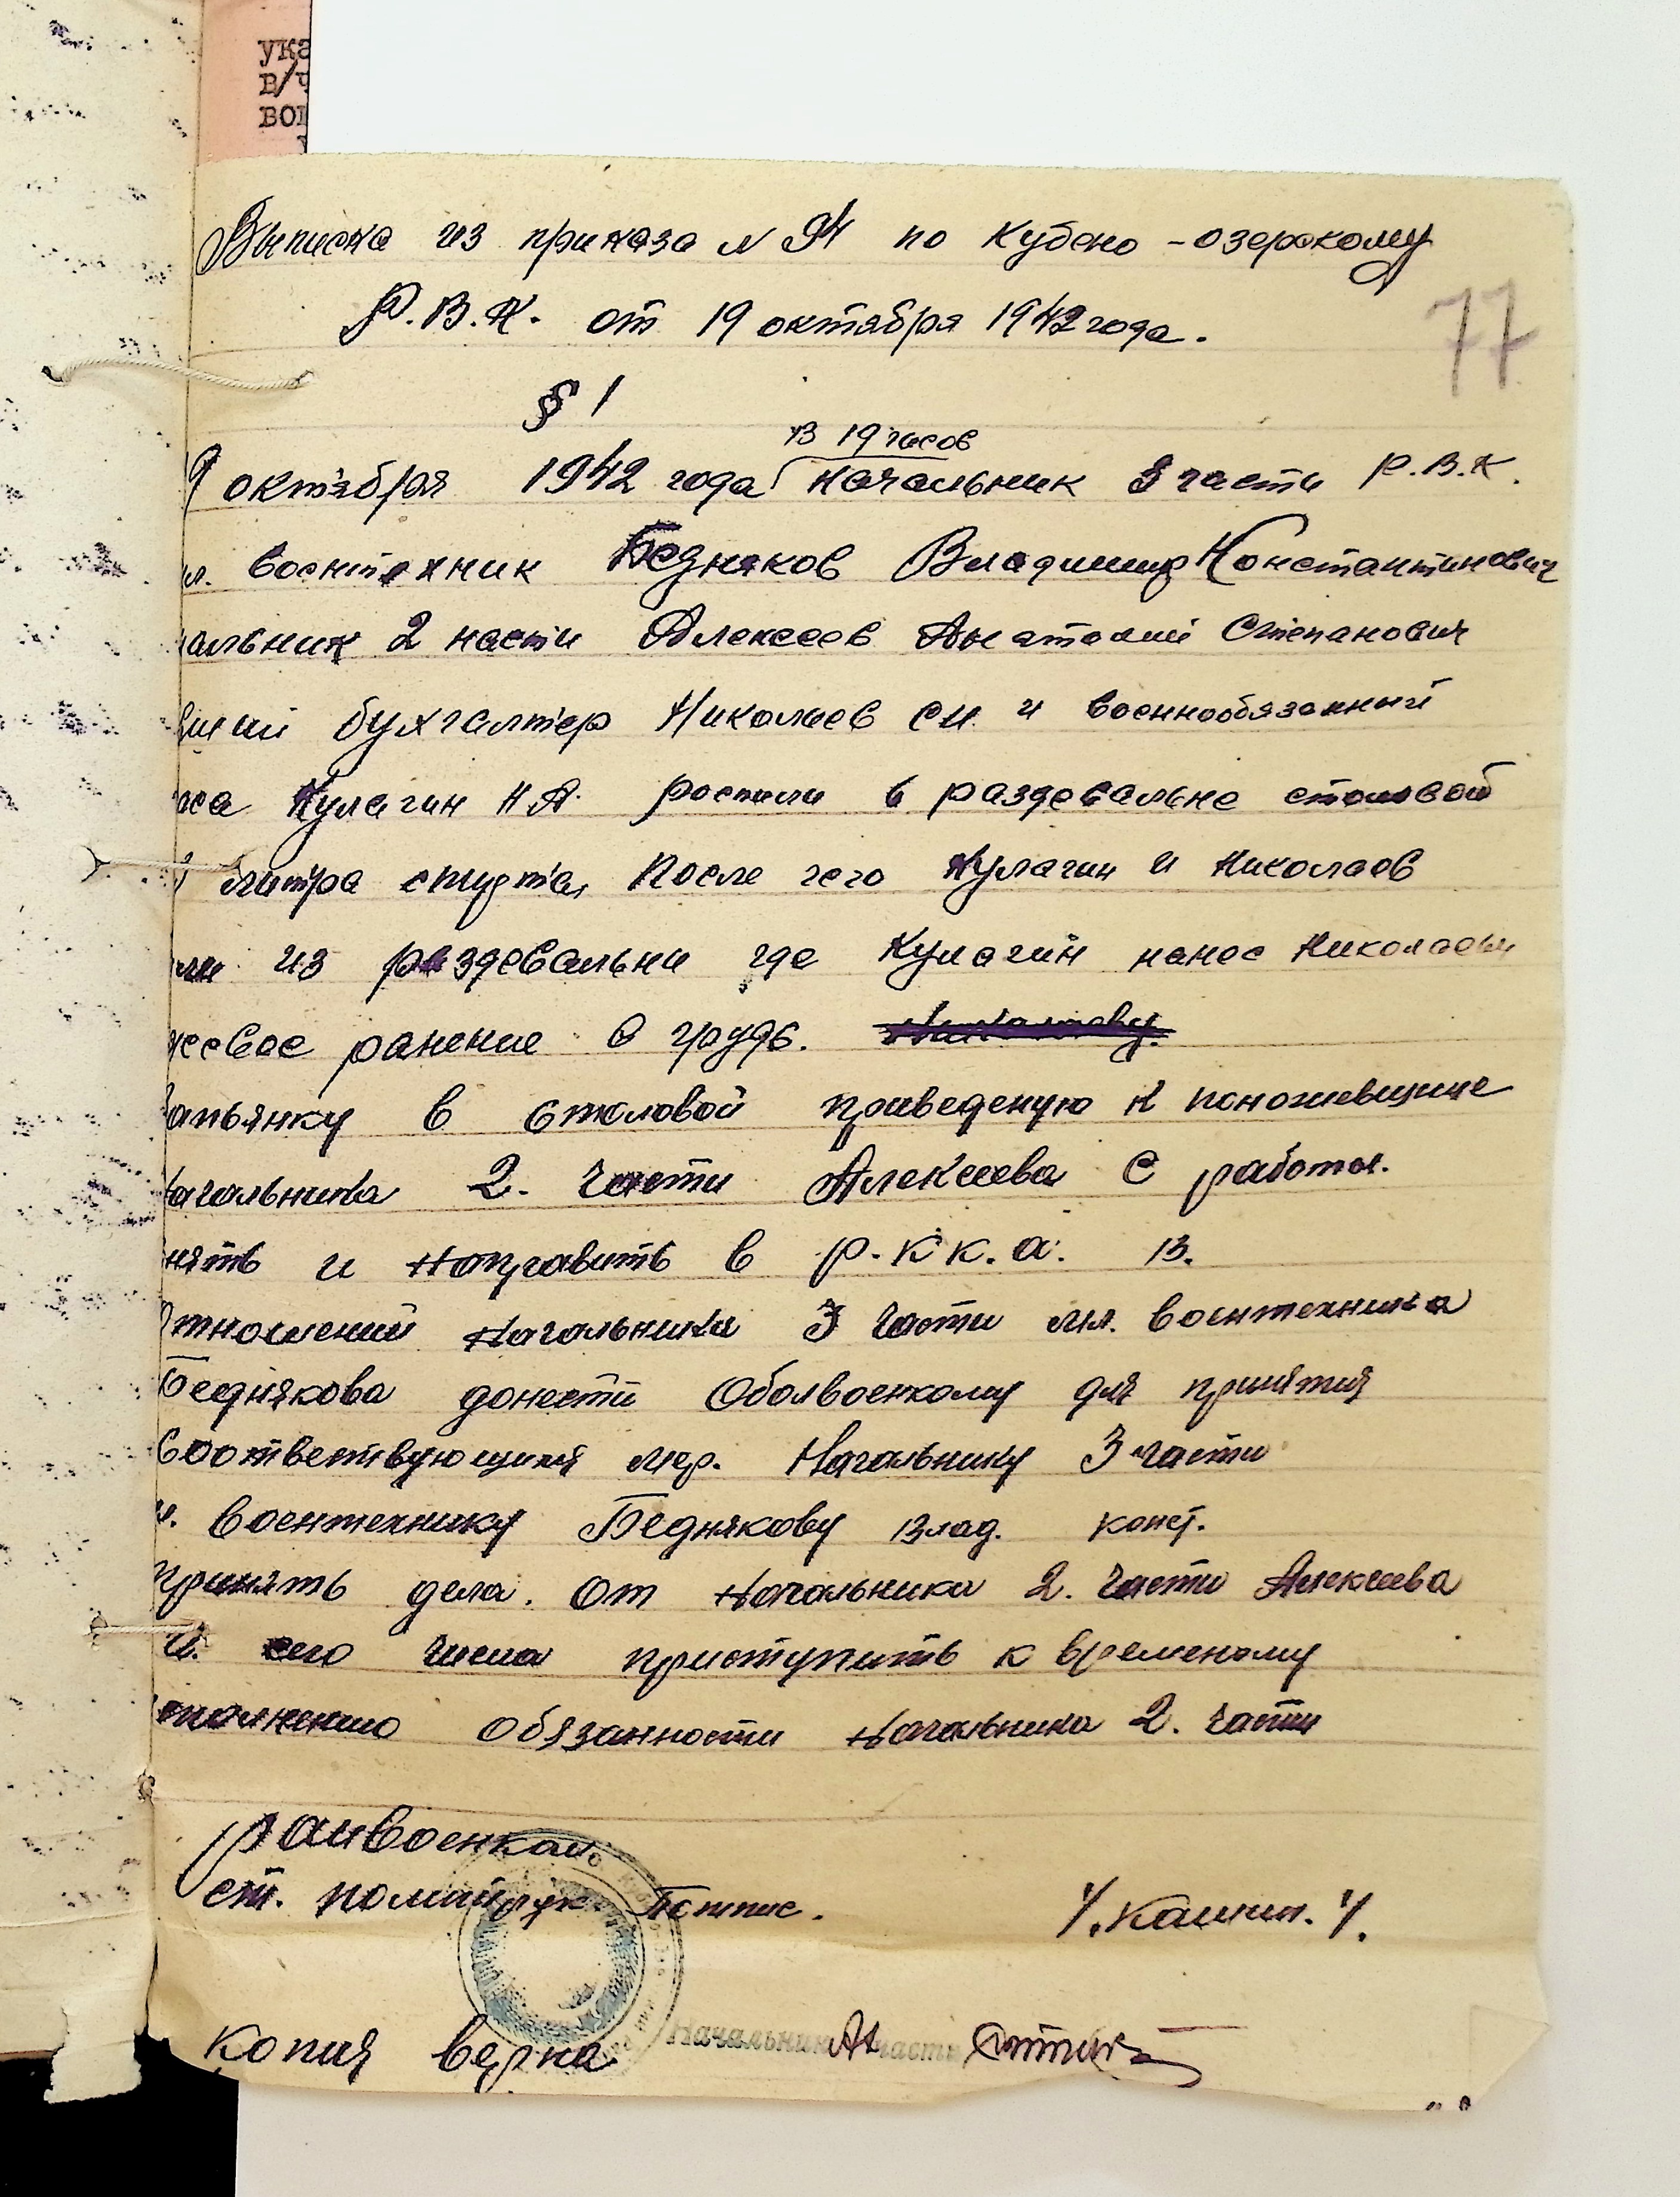 ука
в/ч
вог
Выписка из приказа N 94 по Кубено-озерскому
Р.В.К. от 19 октября 1942 года.
77
§ 1
В 19 часов
9 октября 1942 года начальник 3 части Р.В.К.
л. воентехник Бедняков Владимир Константинович
альник 2 части Алексеев Анатолий Степанович
ший бухгалтер Николаев СИ и военнообязанный
аса Кулагин НА. роспили в раздевальне столовой
литра спирта, После чего Кулагин и Николаев
ли из раздевальни где Кулагин нанес Николаеву
жевое ранение в грудь.
апьянку в столовой приведеную к поножевщине
ачальника 2. части Алексеева С работы.
нять и направить в р.к к.а. В.
тношений начальника 3 части мл. воентехника
Беднякова донести Облвоенкому для принятия
Соответствующих мер. Начальнику 3 части
л. воентехнику Беднякову Влад. конст.
принять дела. от начальника 2. части Алексеева
И. сего числа приступить к временому
сполнению обязанности начальника 2. части
райвоенком
ст. политрук Потпис. /.Кашин./.
копия верна Начальник части